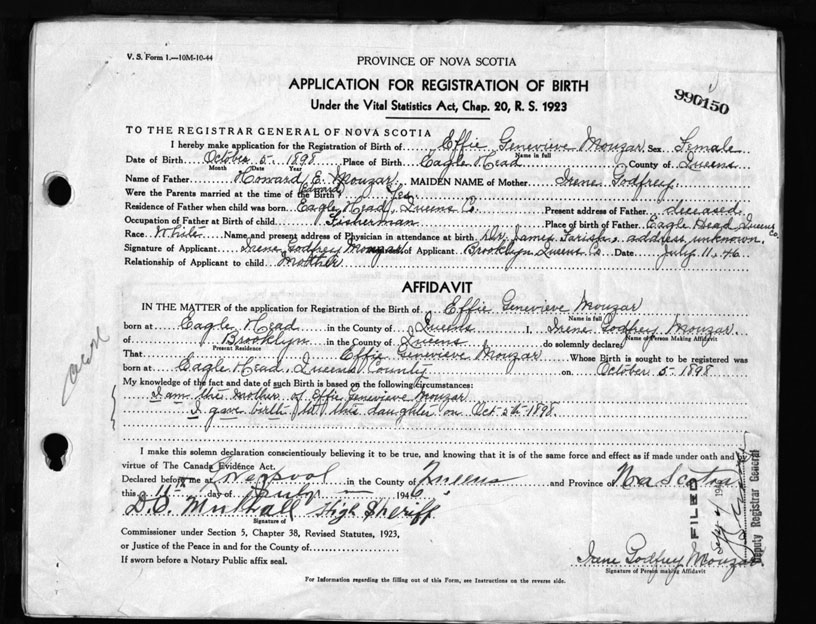 V. S. Form 1.—10M-10-44
PROVINCE OF NOVA SCOTIA
APPLICATION FOR REGISTRATION OF BIRTH
Under the Vital Statistics Act, Chap. 20, R. S. 1923
990150
TO THE REGISTRAR GENERAL OF NOVA SCOTIA
I hereby make application for the Registration of Birth of Effie Genevieve Mouzar Sex Female
Name in full
Date of Birth October 5 1898 Place of Birth Eagle Head County of Queens
Month Date Year
Name of Father Howard E. Mouzar MAIDEN NAME of Mother Irene Godfrey
(Edward)
Were the Parents married at the time of the Birth? Yes
Residence of Father when child was born Eagle Head, Queens Co. Present address of Father deceased
Occupation of Father at Birth of child Fisherman Place of birth of Father Eagle Head Queens Co
Race White Name and present address of Physician in attendance at birth Dr. James Farish, address unknown.
Signature of Applicant Irene Godfrey Mouzar of Applicant Brooklyn Queens Co Date July 11. 46
Relationship of Applicant to child Mother
AFFIDAVIT
IN THE MATTER of the application for Registration of the Birth of Effie Genevieve Mouzar
Name in full
born at Eagle Head in the County of Queens I, Irene Godfrey Mouzar
Name of Person Making Affidavit
of Brooklyn in the County of Queens do solemnly declare
Present Residence
That Effie Genevieve Mouzar Whose Birth is sought to be registered was
born at Eagle Head, Queens County on October 5 1898
My knowledge of the fact and date of such Birth is based on the following circumstances:
I am the mother of Effie Genevieve Mouzar
I gave birth to this daughter on Oct 5th 1898.
I make this solemn declaration conscientiously believing it to be true, and knowing that it is of the same force and effect as if made under oath and by
virtue of The Canada Evidence Act.
Declared before me at Liverpool in the County of Queens and Province of Nova Scotia
this 11th day of July 1946
D. C. Mulhall High Sheriff
Signature of
Commissioner under Section 5, Chapter 38, Revised Statutes, 1923,
or Justice of the Peace in and for the County of
If sworn before a Notary Public affix seal.
Irene Godfrey Mouzar
Signature of Person making Affidavit
For Information regarding the filling out of this Form, see Instructions on the reverse side.
FILED
Deputy Registrar General